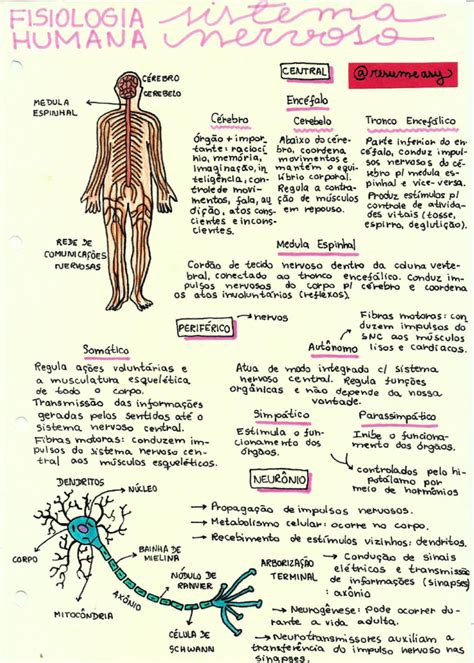 FISIOLOGIA HUMANA
sistema nervoso
CENTRAL
@resumeasy
CÉREBRO
CEREBELO
MEDULA
ESPINHAL
REDE DE
COMUNICAÇÕES
NERVOSAS
Encéfalo
Cérebro
Órgão + impor-
tante: raciocí-
nio, memória,
imaginação, in-
teligência, con-
trole de movi-
mentos, fala, au
dição, atos cons-
cientes e incons-
cientes.
Cerebelo
Abaixo do cére-
bro, coordena
movimentos e
mantém o equi-
líbrio corporal.
Regula a contra-
ção de músculos
em repouso.
Tronco Encefálico
Parte inferior do en-
céfalo, conduz impul-
sos nervosos do cé-
rebro p/ medula es-
pinhal e vice-versa.
Produz estímulos p/
controle de ativida-
des vitais (tosse,
espirro, deglutição).
Medula Espinhal
Cordão de tecido nervoso dentro da coluna verte-
bral, conectado ao tronco encefálico. Conduz im-
pulsos nervosos do corpo p/ cérebro e coordena
os atos involuntários (reflexos).
PERIFÉRICO
nervos
Somático
Regula ações voluntárias e
a musculatura esquelética
de todo o corpo.
Transmissão das informações
geradas pelos sentidos até o
sistema nervoso central.
Fibras motoras: conduzem im-
pulsos do sistema nervoso cen-
tral aos músculos esqueléticos.
Autônomo
Fibras motoras: con-
duzem impulsos do
SNC aos músculos
lisos e cardíacos.
Atua de modo integrado c/ sistema
nervoso central. Regula funções
orgânicas e não depende da nossa
vontade.
Simpático
Estimula o fun-
cionamento dos
órgãos.
Parassimpático
Inibe o funciona-
mento dos órgãos.
controlados pelo hi-
potálamo por
meio de hormônios
NEURÔNIO
DENDRITOS
NÚCLEO
CORPO
BAINHA DE
MIELINA
NÓDULO DE
RANVIER
AXÔNIO
MITOCÔNDRIA
CÉLULA DE
SCHWANN
ARBORIZAÇÃO
TERMINAL
Propagação de impulsos nervosos.
Metabolismo celular: ocorre no corpo.
Recebimento de estímulos vizinhos: dendritos.
Condução de sinais
elétricos e transmissão
de informações (sinapses)
: axônio
Neurogênese: Pode ocorrer du-
rante a vida adulta.
Neurotransmissores auxiliam a
transferência do impulso nervoso nas
sinapses.